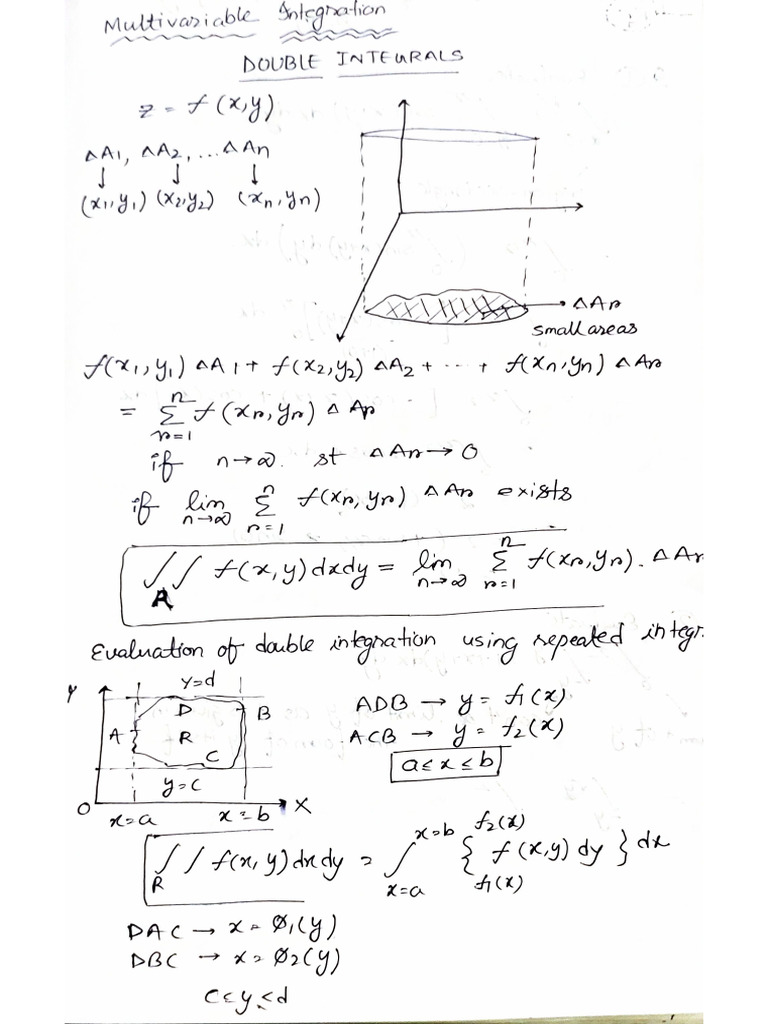 Multivariable Integration
DOUBLE INTEGRALS
z = f(x,y)
△A1, △A2, ... △An
↓ ↓ ↓
(x1,y1) (x2,y2) (xn,yn)
△Ar
small areas
f(x1,y1) △A1 + f(x2,y2) △A2 + ... + f(xn,yn) △An
= n∑r=1 f(xr,yr) △Ar
if n→∞. st △Ar→0
if lim n→∞ n∑r=1 f(xr,yr) △Ar exists
∫∫R f(x,y)dxdy = lim n→∞ n∑r=1 f(xr,yr). △Ar
Evaluation of double integration using repeated integr.
Y
y=d
D
B
A
R
C
y=c
O
x=a
x=b
X
ADB → y = f1(x)
ACB → y = f2(x)
a≤x≤b
∫∫R f(x,y)dxdy = ∫x=a x=b { f1(x) f2(x) f(x,y)dy } dx
DAC → x = Ø1(y)
DBC → x = Ø2(y)
c<y<d